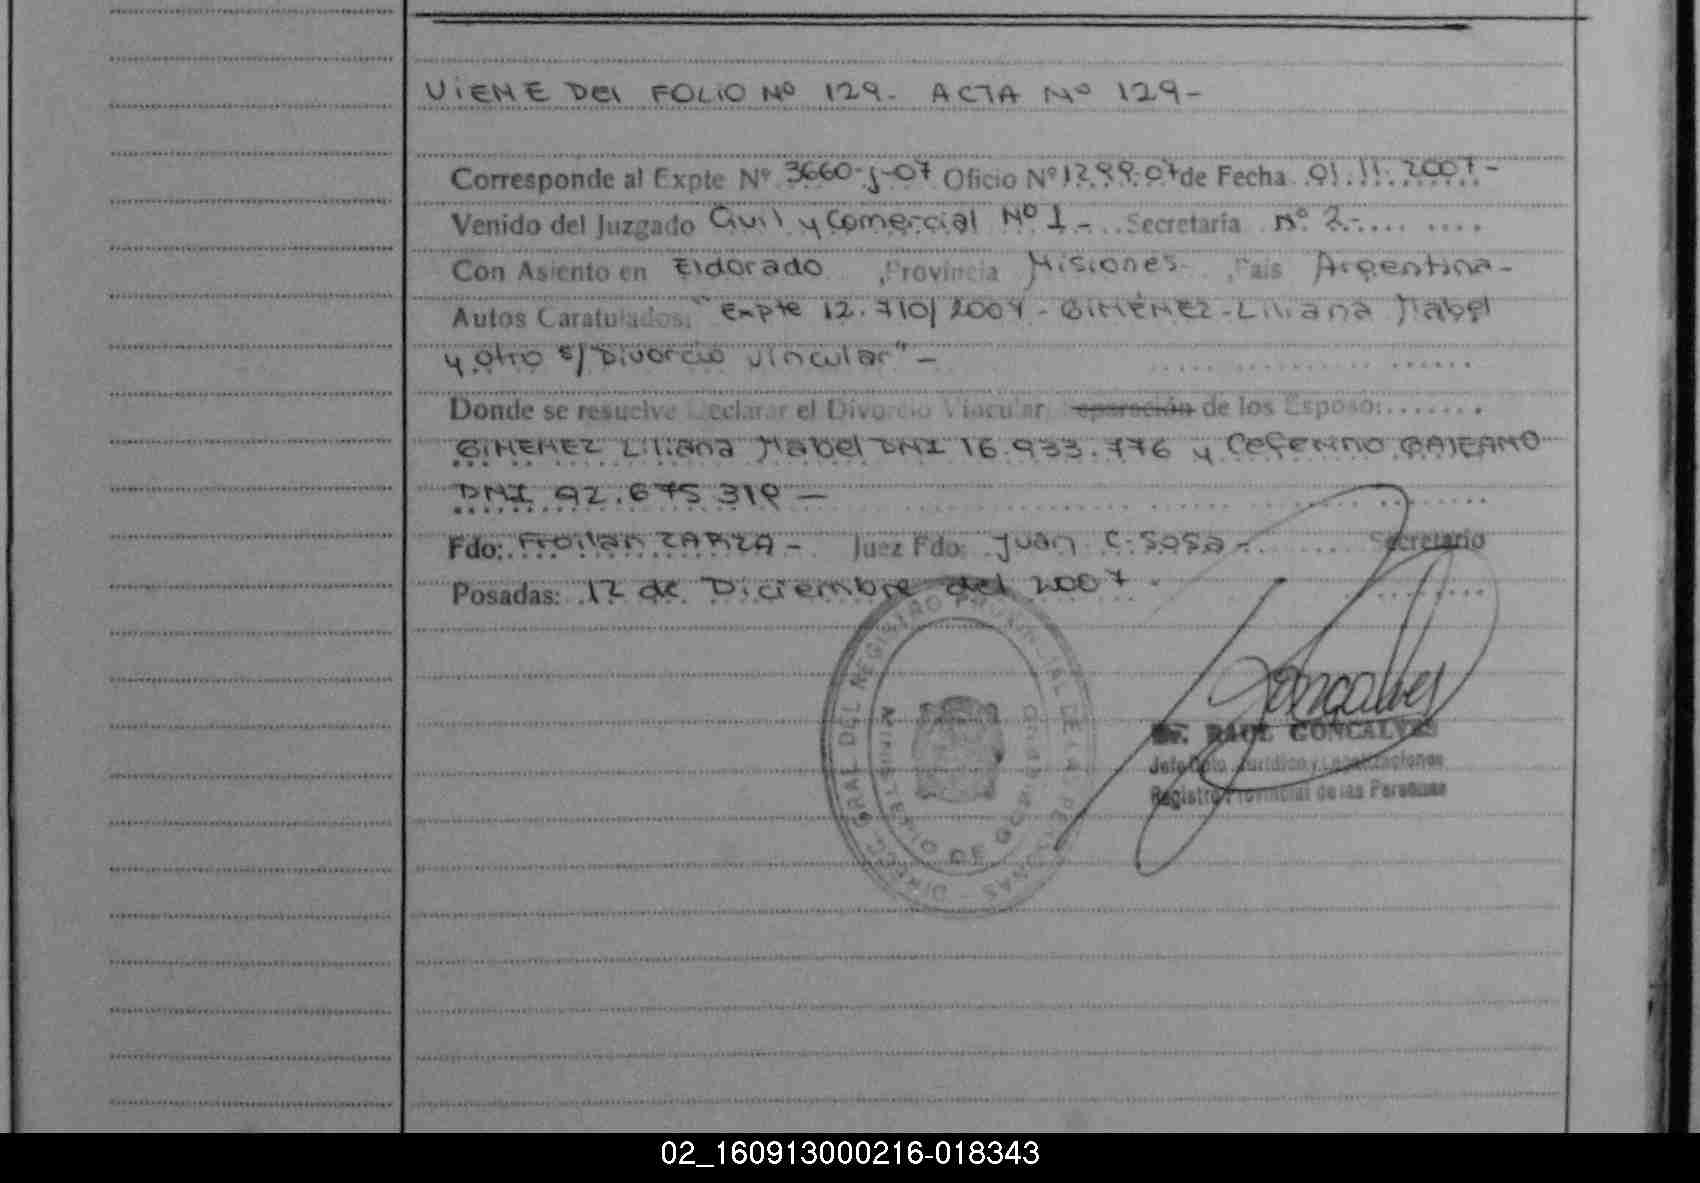 VIENE DEL FOLIO Nº 129- ACTA Nº 129-
Corresponde al Expte Nº 3660-J-07 Oficio Nº 1299-07 de Fecha 01.11.2007-
Venido del Juzgado Civil y Comercial Nº 1- Secretaría Nº 2-
Con Asiento en Eldorado ,Provincia Misiones- ,País Argentina-
Autos Caratulados: "Expte 12.710/2004 - GIMENEZ - Liliana Mabel
y otro s/ Divorcio vincular" -
Donde se resuelve Declarar el Divorcio Vincular, Separación de los Esposo:
GIMENEZ Liliana Mabel DNI 16.933.776 y Ceferino
DNI 92.675.319 -
Fdo: Froilan ZARZA - Juez Fdo: Juan C. SOSA - Secretario
Posadas: 12 de Diciembre del 2007.
DIRECC. GRAL. DEL REGISTRO PROVINCIAL DE LAS PERSONAS
MINISTERIO DE GOBIERNO
Goncalves
Dr. RAUL GONCALVES
Jefe Dpto. Jurídico y Legalizaciones
Registro Provincial de las Personas
02_160913000216-018343